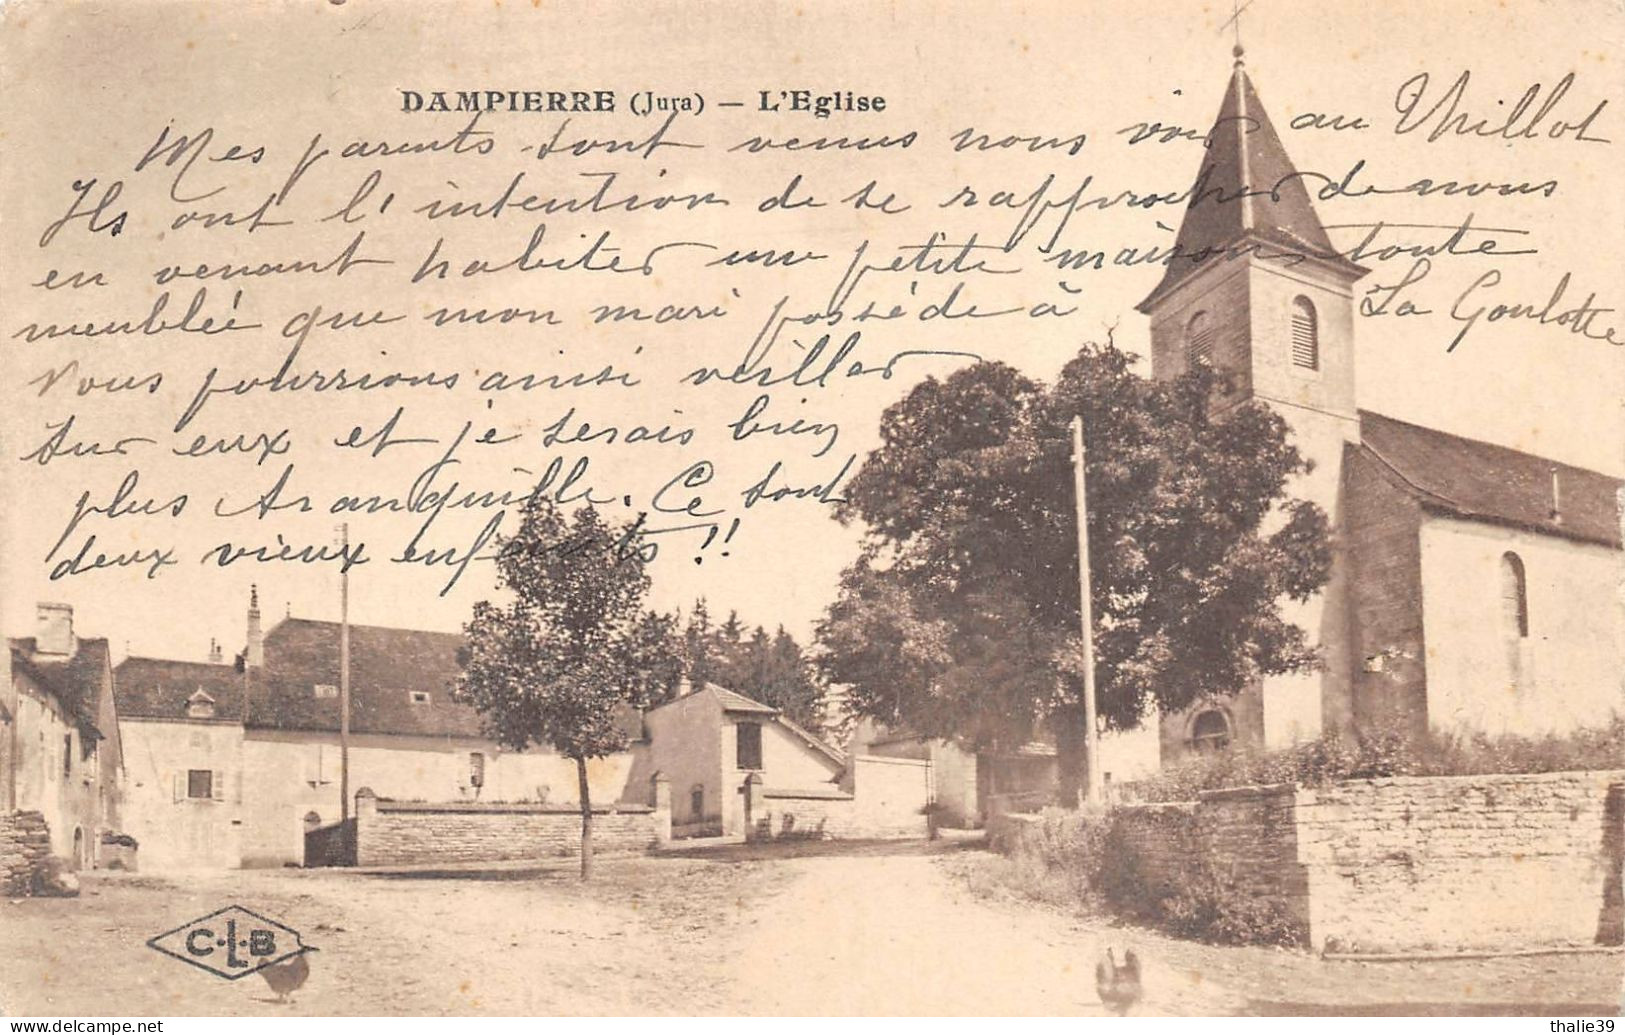 DAMPIERRE (Jura) — L'Eglise
Mes parents sont venus nous voir au Thillot
Ils ont l'intention de se rapprocher de nous
en venant habiter une petite maison toute
meublée que mon mari possède à La Goulotte
Nous pourrions ainsi veiller
sur eux et je serais bien
plus tranquille. Ce sont
deux vieux enfants !!
C·L·B
delcampe.net
thalie39